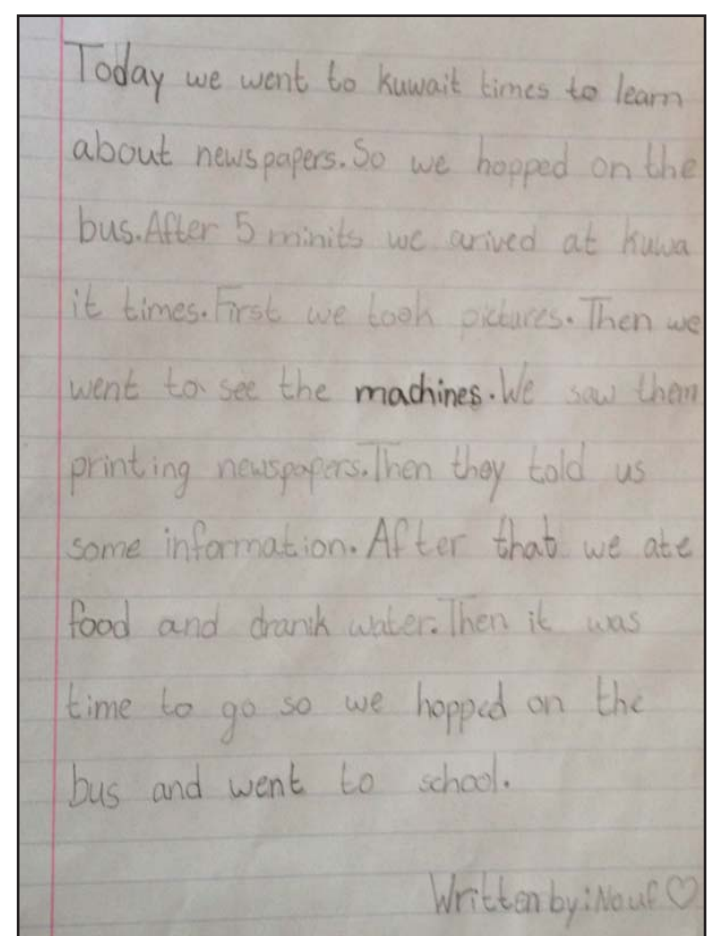 Today we went to kuwait times to learn
about newspapers. So we hopped on the
bus. After 5 minits we arived at kuwa
it times. First we took pictures. Then we
went to see the machines. We saw them
printing newspapers. Then they told us
some information. After that we ate
food and drank water. Then it was
time to go so we hopped on the
bus and went to school.
Written by: Nouf ♡